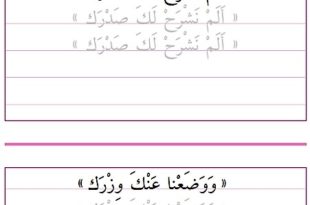 « أَلَمْ نَشْرَحْ لَكَ صَدْرَك »
« أَلَمْ نَشْرَحْ لَكَ صَدْرَك »
« وَوَضَعْنا عَنْكَ وِزْرَك »